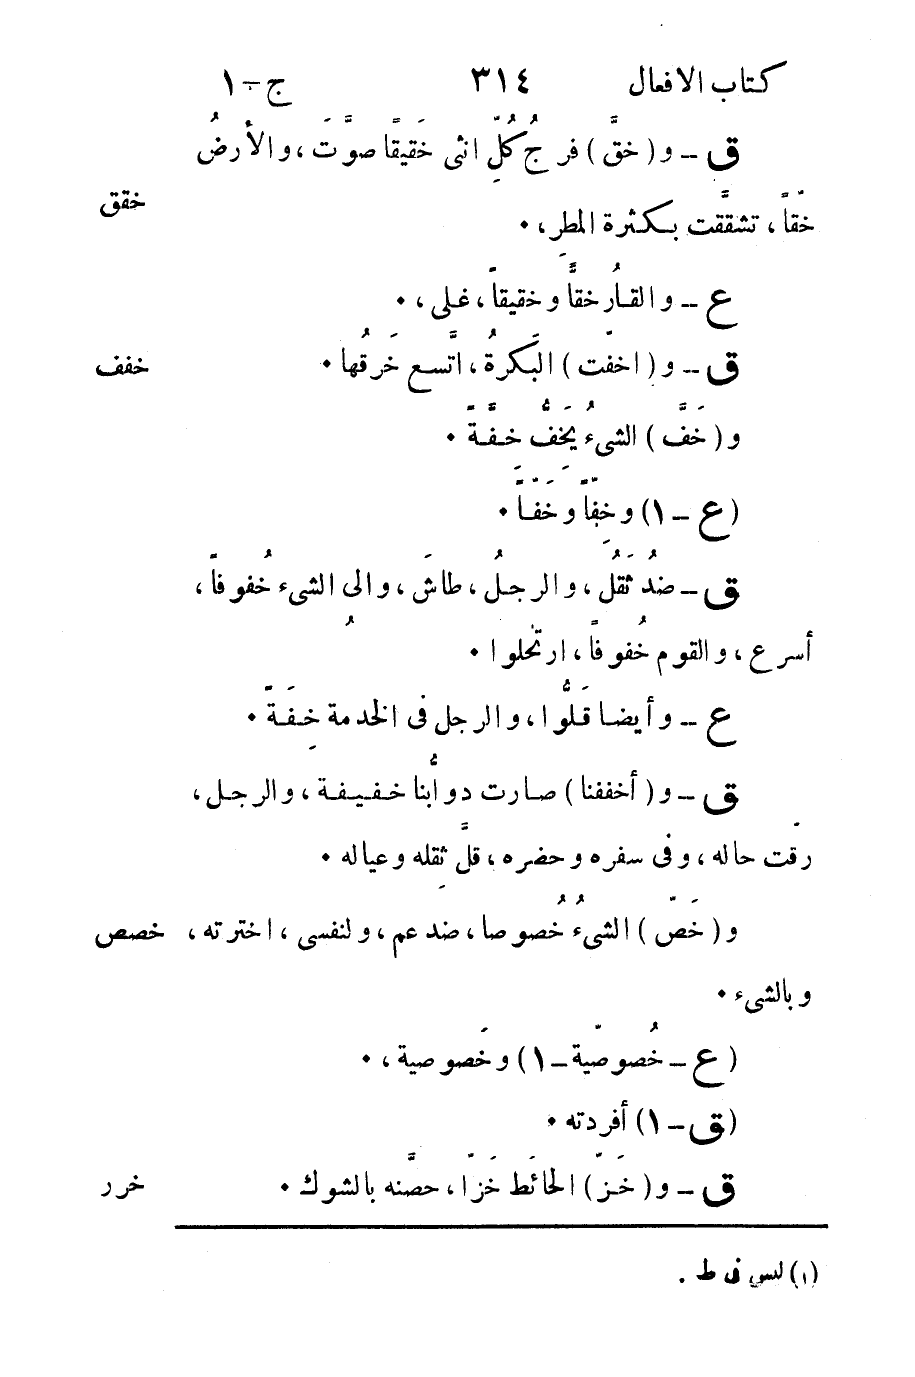 كتاب الافعال ٣١٤ ج-١
ق - و (خقَّ) فرجُ كُلِّ انثى خَقيقًا صوَّتَ، والأرضُ
خقق
خقّاً، تشقَّقت بكثرة المطرِ، •
ع - والقارُ خقاًّ وخقيقاً، غلى، •
ق - و (اخفّت) البَكرةُ، اتَّسع خَرقُها • خفف
و (خَفَّ) الشىءُ يَخِفُّ خِفَّةً •
(ع - ١) وخِفّاً وخَفّاً •
ق - ضدُ ثَقُلَ، والرجلُ، طاشَ، والى الشىء خُفوفاً،
أسرع، والقومُ خُفوفاً، ارتحلوا •
ع - وأيضا قَلُّوا، والرجل فى الخدمة خِفَةً •
ق - و (أخففنا) صارت دوابُّنا خفيفة، والرجل،
رقّت حاله، وفى سفره وحضره، قلَّ ثِقله وعياله •
و (خَصّ) الشىءُ خُصوصا، ضد عم، ولنفسى، اخترته، خصص
وبالشىء •
(ع - خُصوصّية - ١) وخَصوصية، •
(ق - ١) أفردته •
ق - و (خَزّ) الحائَط خَزّا، حصَّنه بالشوك • خرر
(١) ليس فى ط .